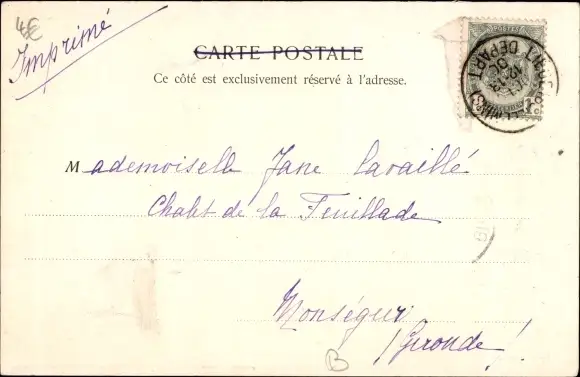 4€
Imprimé
CARTE POSTALE
Ce côté est exclusivement réservé à l'adresse.
POSTES
DEPART
Mademoiselle Jane Lavaillé
Chalet de la Feuillade
Monségur
(Gironde)
B